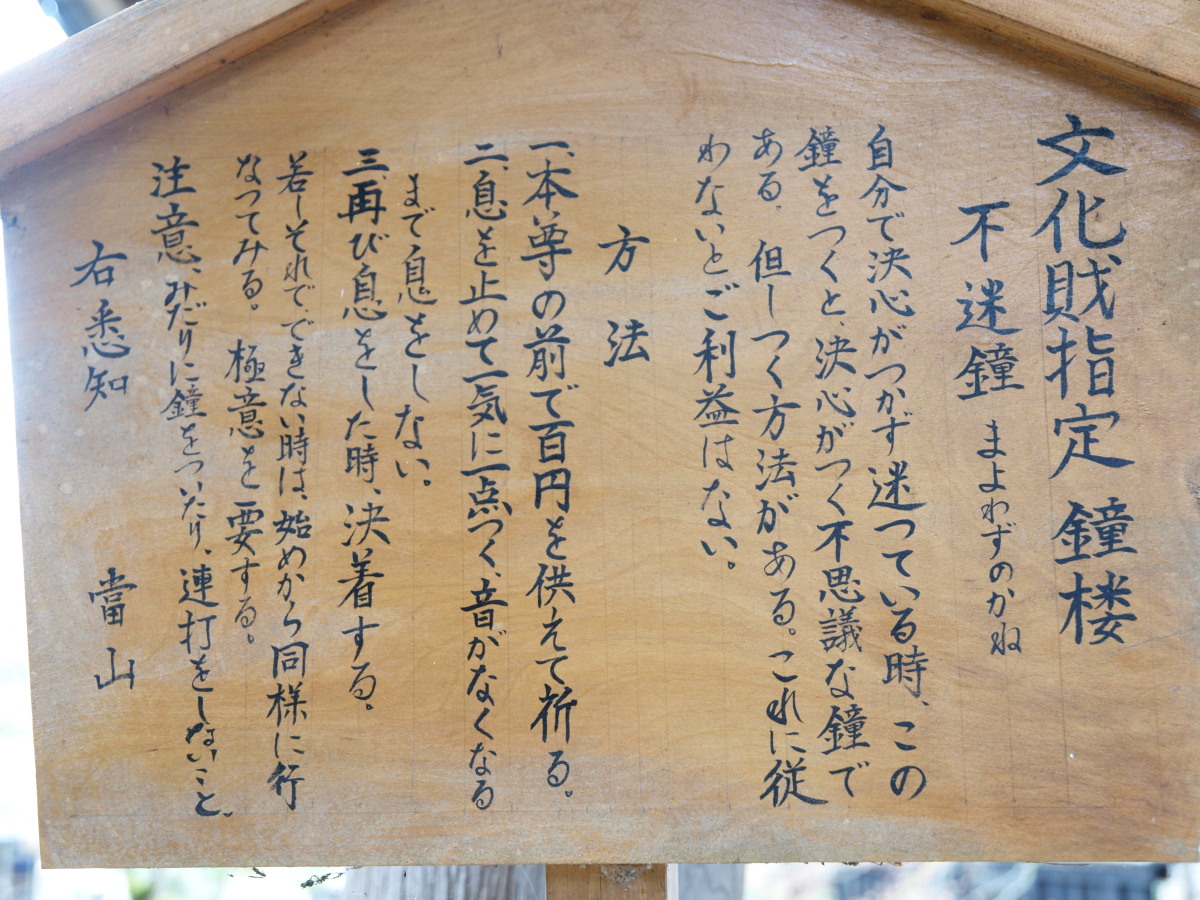 文化財指定 鐘楼
不迷鐘 まよわずのかね
自分で決心がつかず迷つている時、この
鐘をつくと、決心がつく不思議な鐘で
ある。但しつく方法がある。これに従
わないとご利益はない。
方法
一、本尊の前で百円を供えて祈る。
二、息を止めて一気に一点つく、音がなくなる
まで息をしない。
三、再び息をした時、決着する。
若しそれで、できない時は、始めから同様に行
なつてみる。極意を要する。
注意、みだりに鐘をついたり、連打をしないこと。
右悉知 當山